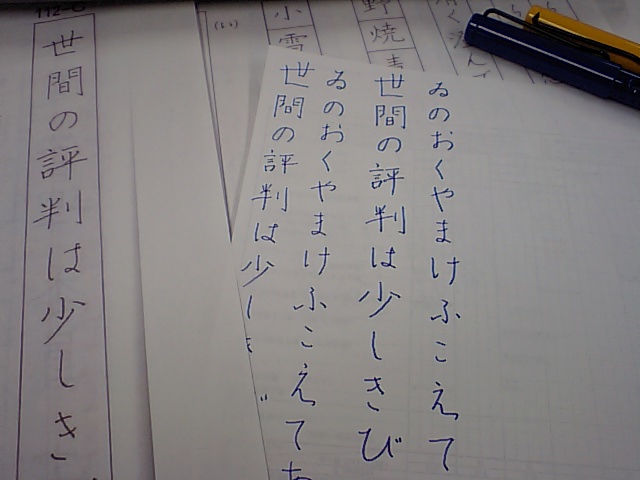 ゐのおくやまけふこえて
世間の評判は少しきび
ゐのおくやまけふこえてあ
世間の評判は少しき
野焼
小雪
世間の評判は少しき